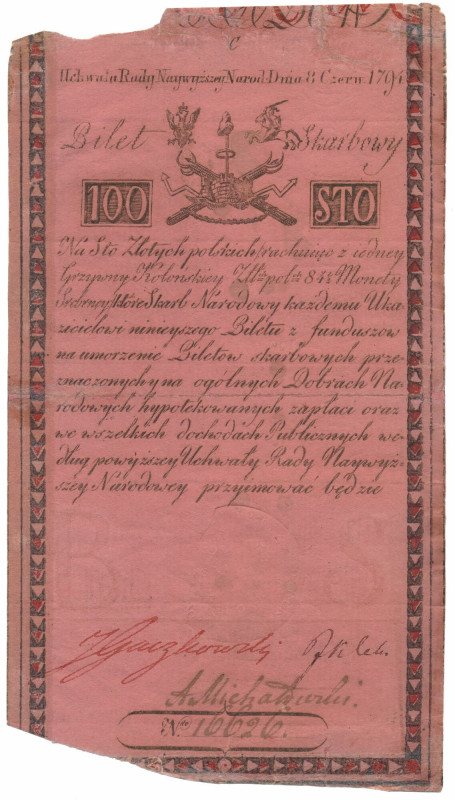 C
Uchwała Rady Naywyższey Narod. Dnia 8 Czerw. 1794
Bilet Skarbowy
100 STO
Na Sto Złotych polskich rachuiąc z iedney
Grzywny Kolońskiey Złł: pol: 84½ Monety
Srebrney które Skarb Narodowy każdemu Uka-
zicielowi ninieyszego Biletu z funduszow
na umorzenie Biletów skarbowych prze-
znaczonych y na ogólnych Dobrach Na-
rodowych hypotekowanych zapłaci oraz
we wszelkich dochodach Publicznych we-
dług powyższey Uchwały Rady Naywyż-
szey Narodowey przyimować będzie
A. Michałowski.
Nro 16626.